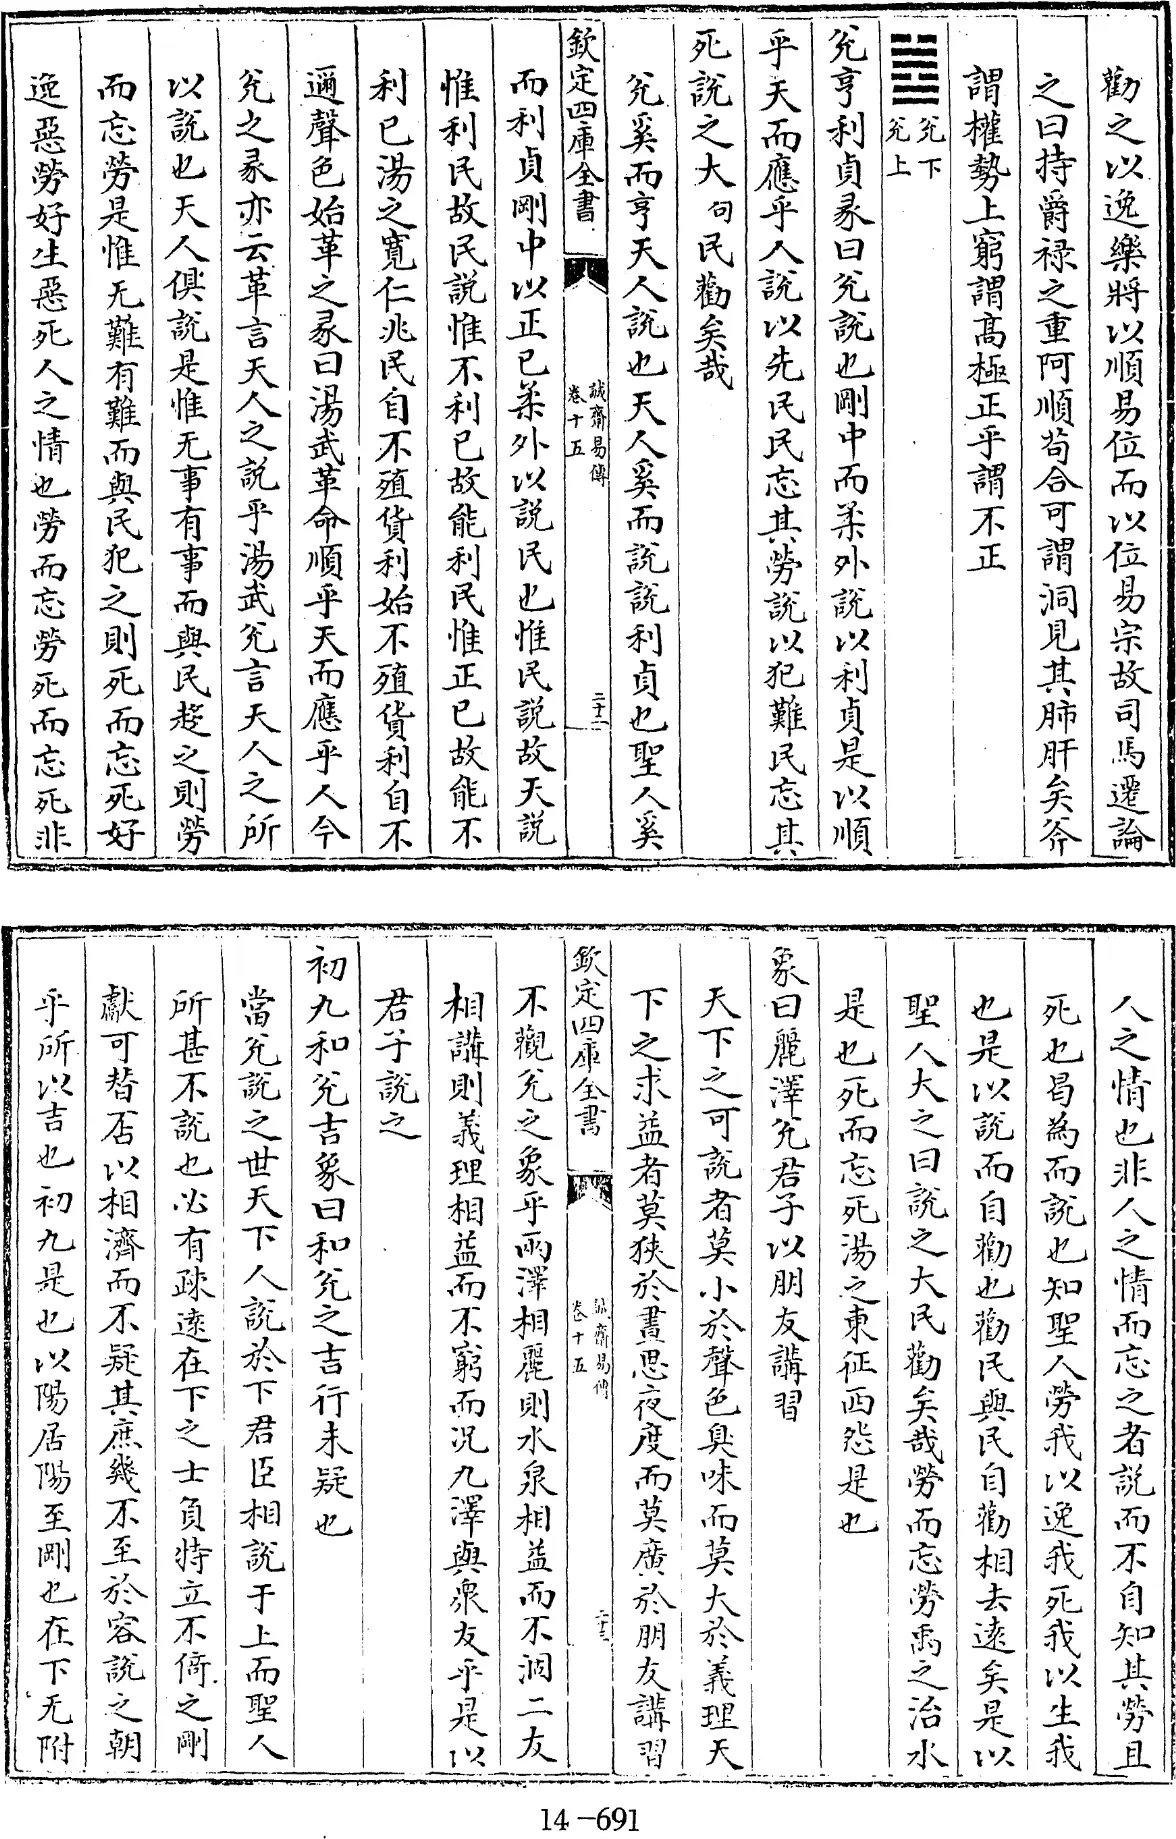 勸之以逸樂將以順易位而以位易宗故司馬遷論
之曰持爵禄之重阿順苟合可謂洞見其肺肝矣斧
謂權勢上窮謂髙極正乎謂不正
兊下
兊上
兊亨利貞彖曰兊説也剛中而柔外説以利貞是以順
乎天而應乎人説以先民民忘其勞説以犯難民忘其
死説之大句民勸矣哉
兊奚而亨天人説也天人奚而説説利貞也聖人奚
欽定四庫全書
誠齋易傳
卷十五
二十二
而利貞剛中以正已柔外以説民也惟民説故天説
惟利民故民説惟不利已故能利民惟正已故能不
利已湯之寛仁兆民自不殖貨利始不殖貨利自不
邇聲色始革之彖曰湯武革命順乎天而應乎人今
兊之彖亦云革言天人之説乎湯武兊言天人之所
以説也天人俱説是惟无事有事而與民趍之則勞
而忘勞是惟无難有難而與民犯之則死而忘死好
逸惡勞好生惡死人之情也勞而忘勞死而忘死非
人之情也非人之情而忘之者説而不自知其勞且
死也曷為而説也知聖人勞我以逸我死我以生我
也是以説而自勸也勸民與民自勸相去遠矣是以
聖人大之曰説之大民勸矣哉勞而忘勞禹之治水
是也死而忘死湯之東征西怨是也
象曰麗澤兊君子以朋友講習
天下之可説者莫小於聲色臭味而莫大於義理天
下之求益者莫狹於晝思夜度而莫廣於朋友講習
欽定四庫全書
誠齋易傳
卷十五
二十三
不觀兊之象乎兩澤相麗則水泉相益而不涸二友
相講則義理相益而不窮而况九澤與衆友乎是以
君子説之
初九和兊吉象曰和兊之吉行未疑也
當兊説之世天下人説於下君臣相説于上而聖人
所甚不説也必有疎逺在下之士負特立不倚之剛
獻可替否以相濟而不疑其庶幾不至於容説之朝
乎所以吉也初九是也以陽居陽至剛也在下无附
14-691